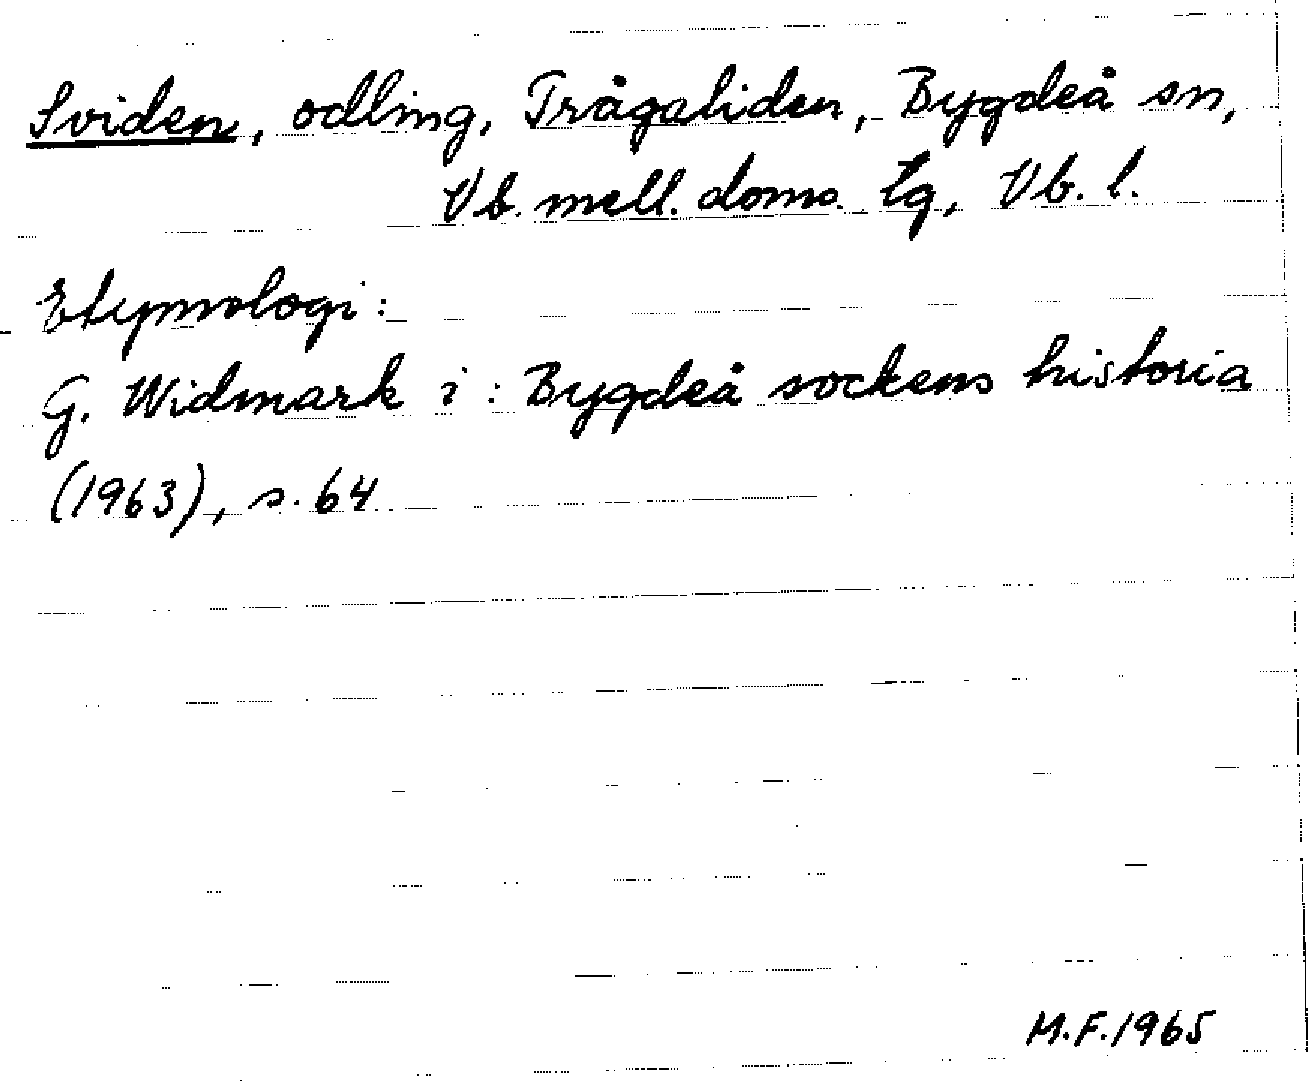 Sviden, odling, Trågaliden, Bygdeå sn,
Vb. mell. doms. tg, Vb. l.
Etymologi:
G. Widmark i: Bygdeå sockens historia
(1963), s. 64
M.F. 1965